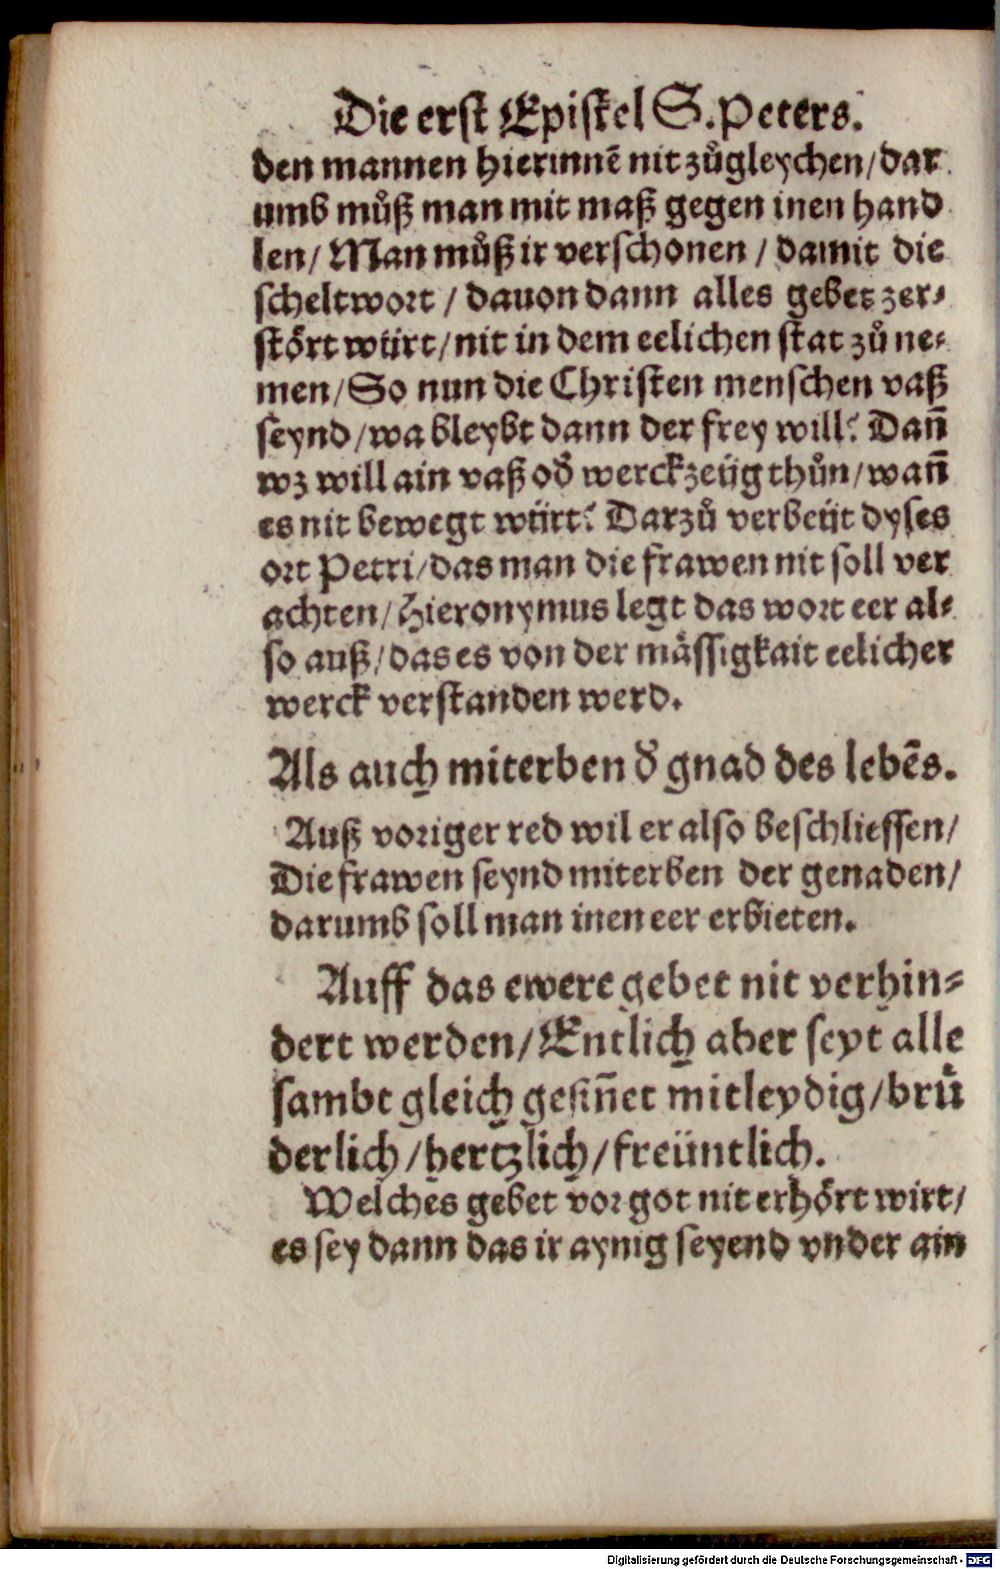 Die erst Epistel S. Peters.
den mannen hierinnē nit zůgleychen/dar
umb můß man mit maß gegen inen hand
len/ Man můß ir verschonen / damit die
scheltwort / dauon dann alles gebet zer⸗
stört würt/nit in dem eelichen stat zů ne⸗
men/So nun die Christen menschen vaß
seynd/wa bleybt dann der frey will? Dañ
wz will ain vaß oď werckzeüg thůn/wañ
es nit bewegt würt? Darzů verbeüt dyses
ort Petri/das man die frawen nit soll ver
achten/Hieronymus legt das wort eer al⸗
so auß/das es von der mässigkait eelicher
werck verstanden werd.
Als auch miterben ď gnad des lebēs.
Auß voriger red wil er also beschliessen/
Die frawen seynd miterben der genaden/
darumb soll man inen eer erbieten.
Auff das ewere gebet nit verhin⸗
dert werden/Entlich aber seyt alle
sambt gleich gesiñet mitleydig/brů
derlich/hertzlich/freüntlich.
Welches gebet vor got nit erhört wirt/
es sey dann das ir aynig seyend vnder ain
Digitalisierung gefördert durch die Deutsche Forschungsgemeinschaft - DFG